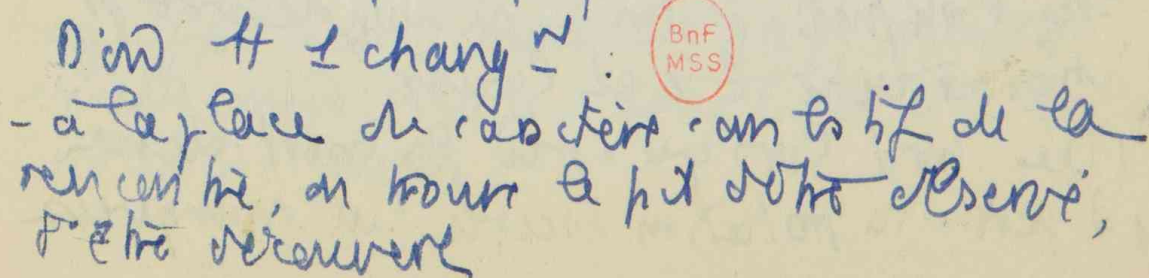 D'où # 1 chang^nt :
BnF
MSS
- à la place du caractère constitutif de la
rencontre, on trouve le fait d'être observé,
d'être découvert